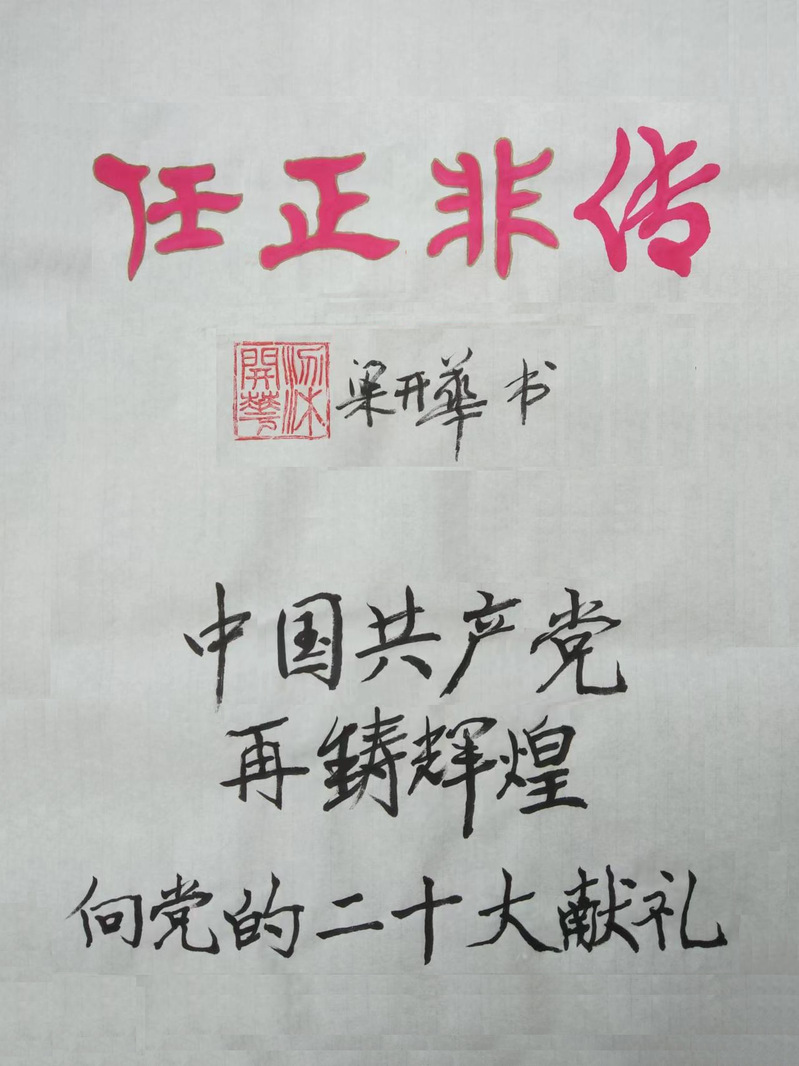 任正非传
梁開華
梁开華书
中国共产党
再鋳辉煌
向党的二十大献礼